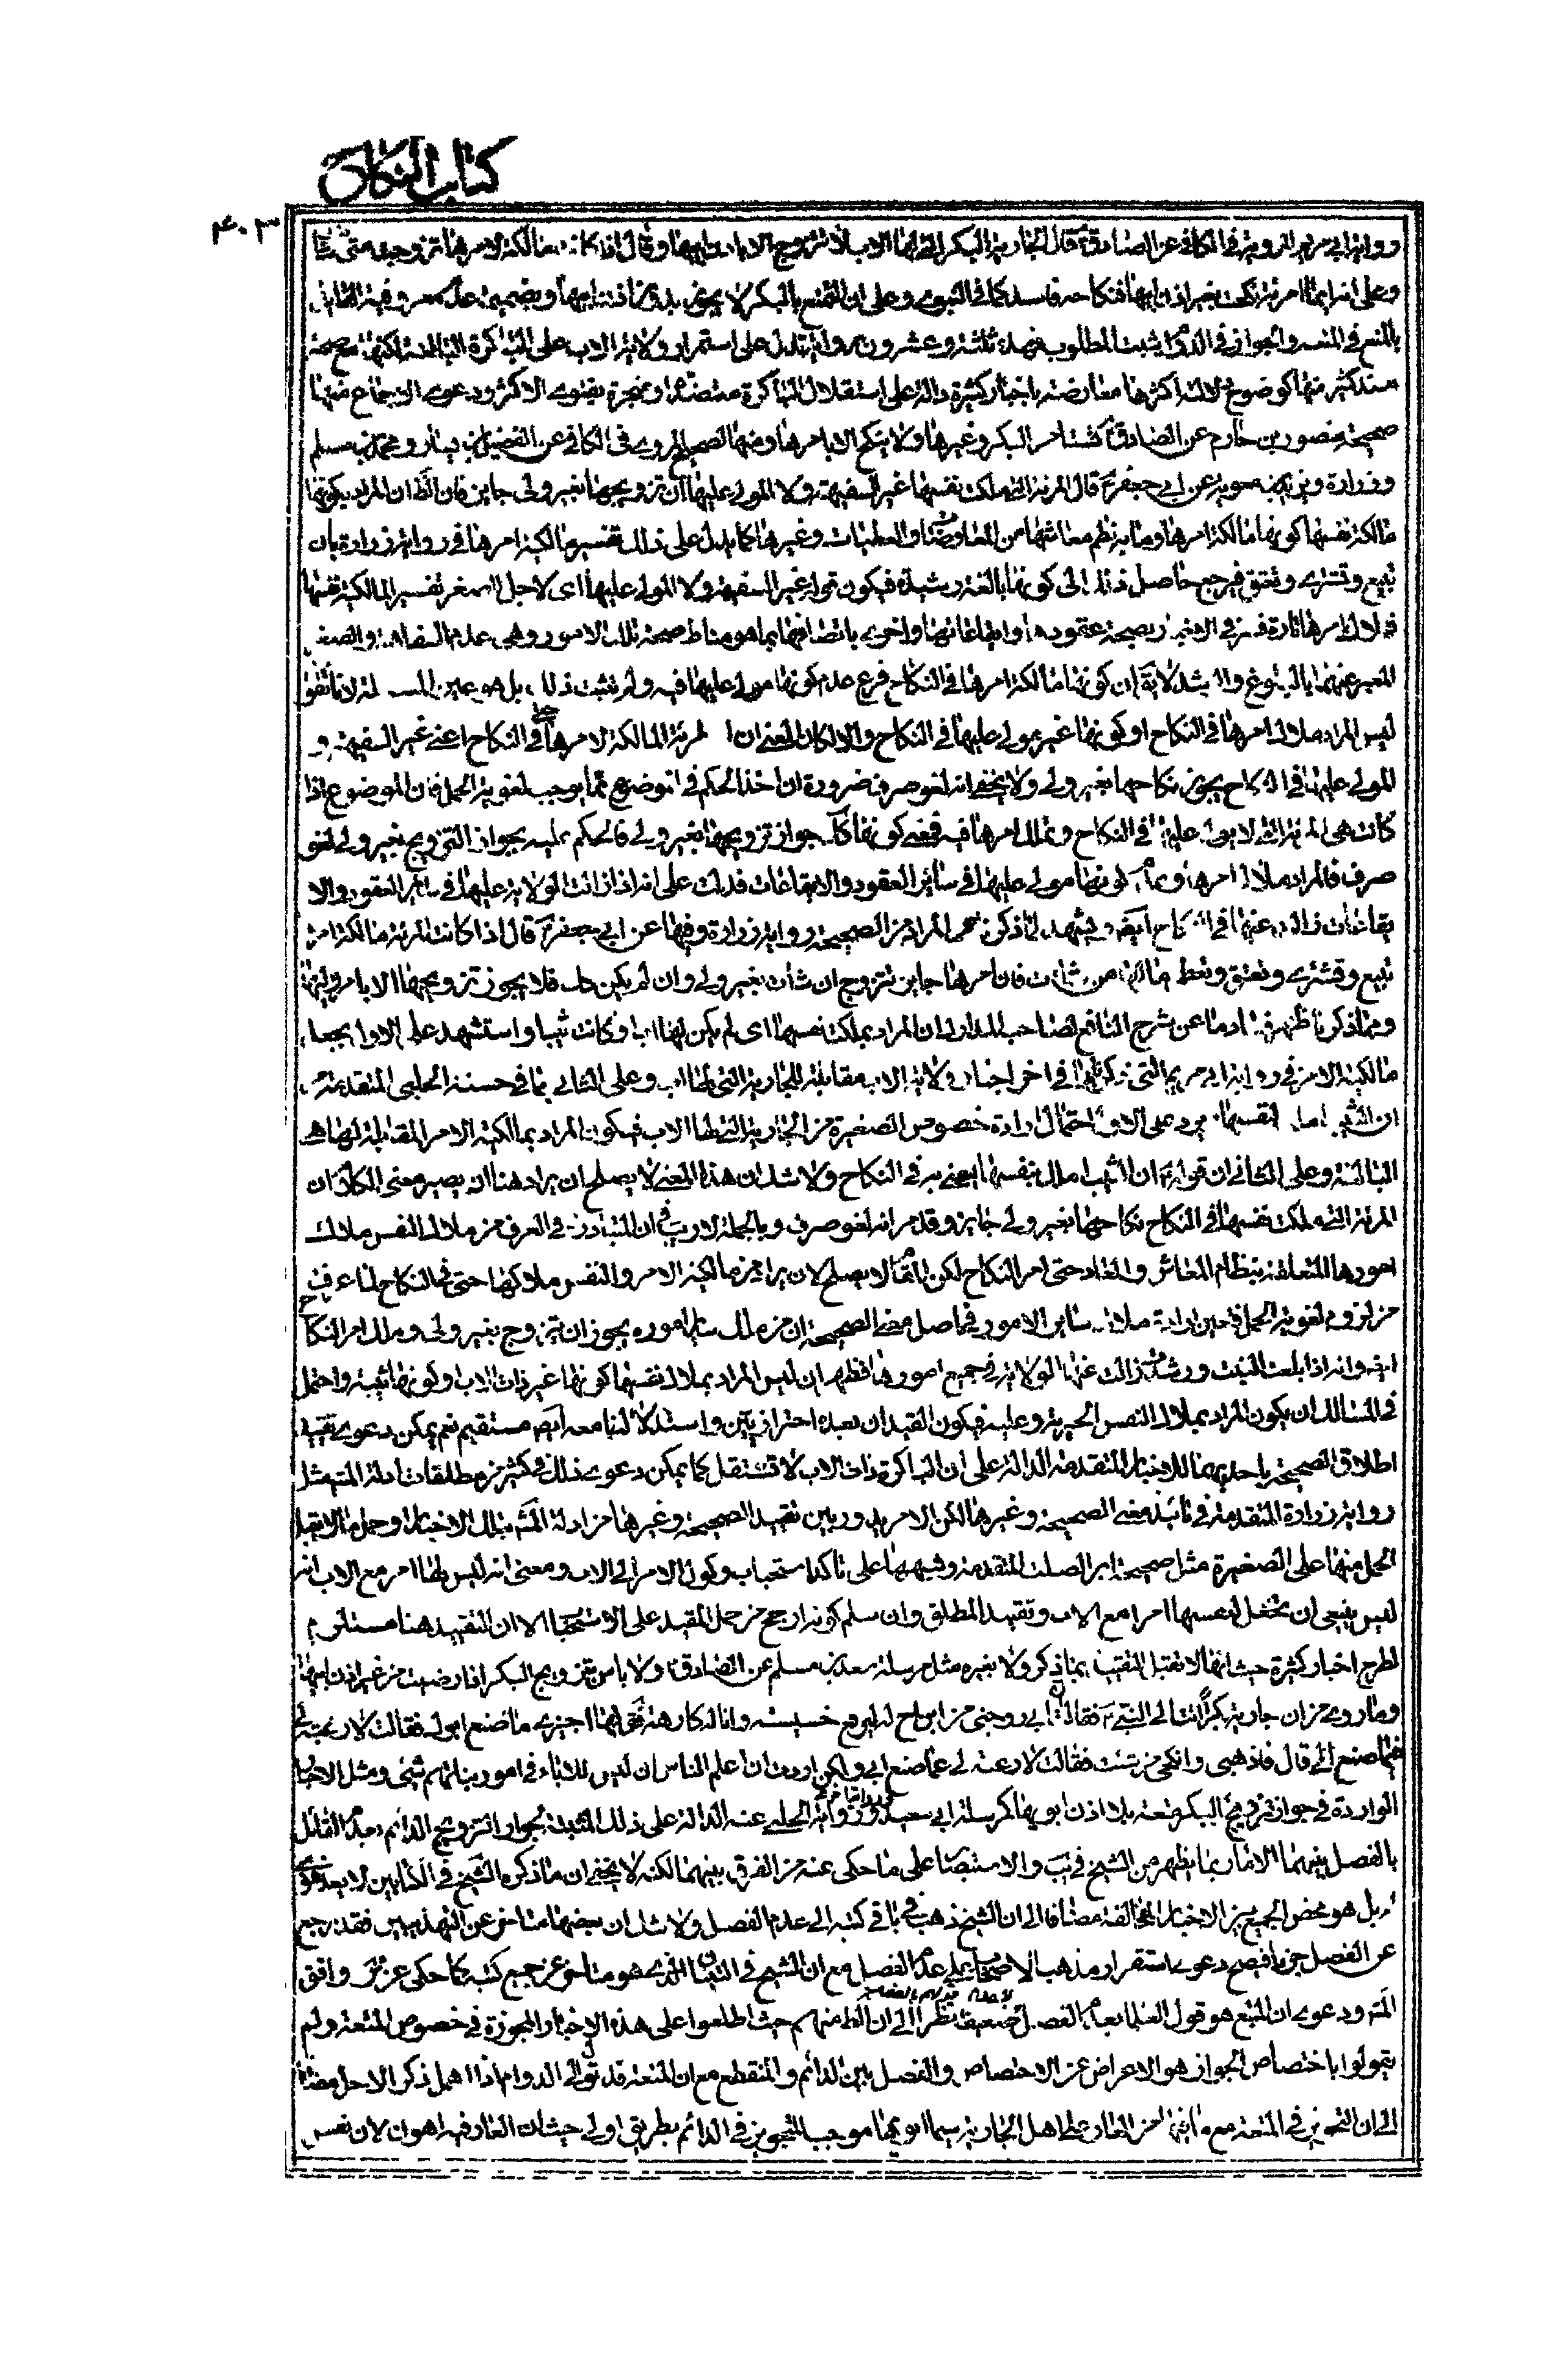 كتاب النكاح
٤٠٣
ورواية ابي مريم المروية في الكافي عن الصادق ع قال الجارية البكر التي لها الاب لا تتزوج الا باذن ابيها وقال اذا كانت مالكة لامرها تزوجت متى شائت
وعلى ان ايما امرئة نكحت بغير اذن ابيها فنكاحه فاسد كما في النبوي وعلى ان التمتع بالبكر لا يجوز بدون اذن ابيها وبضميمة عدم معروفية القائل
بالمنع في المتعه والجواز في الدوام يثبت المطلوب فهذه ثلثة وعشرون رواية تدل على استمرار ولاية الاب على الباكرة البالغة لكنها مع صحة
سند كثير منها كوضوح دلالة اكثرها معارضة باخبار كثيرة دالة على استقلال الباكرة معتضدة او منجبرة بفتوى الاكثر ودعوى الاجماع منها
صحيحة منصور بن حازم عن الصادق ع تستامر البكر وغيرها ولا ينكح الا بامرها ومنها الصحيح المروي في الكافي عن الفضيل بن يسار ومحمد بن مسلم
وزرارة وبريد بن معوية عن ابي جعفر ع قال المرئة التي ملكت نفسها غير السفيهة ولا المولى عليها ان تزويجها بغير ولي جايز فان الظ ان المراد بكونها
مالكة نفسها كونها مالكة امرها وما به نظم معاشها من المعاوضات والعطيات وغيرها كما يدل على ذلك تفسير مالكية امرها في رواية زرارة بان
تبيع وتشتري وتعتق فيرجع حاصل ذلك الى كونها بالغة رشيدة فيكون قوله غير السفيهة ولا المولى عليها اى لاجل الصغر تفسير المالكية نفسها
فملاك امرها تارة فسر في الاخبار بصحة عقودها وايقاعاتها واخرى باتصافها بما هو مناط صحة تلك الامور وهي عدم السفاهة والصغر
المعبر عنهما بالبلوغ والرشد لا يق ان كونها مالكة امرها في النكاح فرع عدم كونها مولى عليها فيه ولم يثبت ذلك بل هو عين المسئلة لانا نقول
ليس المراد ملاك امرها في النكاح او كونها غير مولى عليها في النكاح والا لكان المعنى ان المرئة المالكة لامرها في النكاح اعنى غير السفيهة و
المولى عليها في النكاح يجوز نكاحها بغير ولي ولا يخفى انه لغو صرف ضرورة ان اخذ الحكم في الموضوع مما يوجب لغوية الحمل فان الموضوع اذا
كانت هي المرئة التي لا يولى عليها في النكاح وتملك امرها فيه فمعنى كونها كك جواز تزويجها بغير ولي فالحكم عليه بجواز التزويج بغير ولي لغو
صرف فالمراد ملاك امرها وعدم كونها مولى عليها في سائر العقود والايقاعات فدلت على انه اذا زالت الولاية عليها في سائر العقود والا
يقاعات زالت عنها في النكاح ايض ويشهد لما ذكرنا من المراد من الصحيحة رواية زرارة وفيها عن ابي جعفر ع قال اذا كانت المرئة مالكة امرها
تبيع وتشتري وتعتق وتعطى مالها من شائت فان امرها جايز تتزوج ان شائت بغير ولي وان لم يكن كك فلا يجوز تزويجها الا بامر وليها
ومما ذكرنا ظهر فساد ما عن شرح النافع لصاحب المدارك ان المراد بملكت نفسها اى لم يكن لها اب او كانت ثيبا واستشهد على الاول بجعل
مالكية الامر في رواية ابي مريم التي ذكرناها في اخر اخبار ولاية الاب مقابلة للجارية التي لها اب وعلى الثاني بما في حسنة الحلبي المتقدمة
ان الثيب املك بنفسها يرد على الاول احتمال ارادة خصوص الصغيرة من الجارية التي لها الاب فيكون المراد بمالكية الامر المقابلة لها هي
البالغة وعلى الثاني ان قوله ع ان الثيب املك بنفسها يعنى به في النكاح ولا شك ان هذا المعنى لا يصلح ان يراد هنا اذ يصير معنى الكلام ان
المرئة التي ملكت نفسها في النكاح نكاحها بغير ولي جايز وقد مر انه لغو صرف وبالجملة لا ريب في ان المتبادر في العرف من ملاك النفس ملاك
امورها المتعلقة بنظام المعاش والمعاد حتى امر النكاح لكن المقام لا يصلح لان يراد من مالكية الامر والنفس ملاكها حتى في النكاح لما عرفت
من لزوم لغوية الحمل فتعين ارادة ملاك سائر الامور فحاصل معنى الصحيحة ان من ملك سائر اموره يجوز ان يتزوج بغير ولي وملك امر النكاح
ايض وانه اذا بلغت البنت ورشدت زالت عنها الولاية في جميع امورها فظهر ان ليس المراد بملاك نفسها كونها غير ذات الاب او كونها ثيبة واحتمل
في المسالك ان يكون المراد بملاك النفس الحرية وعليه فيكون القيدان بعده احترازيين واستدلالنا معه ايض مستقيم نعم يمكن دعوى تقييد
اطلاق الصحيحة باحديهما للاخبار المتقدمة الدالة على ان الباكرة ذات الاب لا تستقل كما يمكن دعوى ذلك في كثير من مطلقات ادلة المتمثل
رواية زرارة المتقدمة في تائيد معنى الصحيحة وغيرها لكن الامر يدور بين تقييد الصحيحة وغيرها من ادلة المشهور بتلك الاخبار او حمل ما لا يقبل
الحمل منها على الصغيرة مثل صحيحة ابن الصلت المتقدمة وشبهها على تاكد استحباب وكول الامر الى الاب ومعنى انه ليس لها امر مع الاب انه
ليس ينبغي ان تجعل لنفسها امرا مع الاب وتقييد المطلق وان سلم كونه ارجح من حمل المقيد على الاستحباب الا ان التقييد هنا مستلزم
لطرح اخبار كثيرة حيث انها لا تقبل التقييد بما ذكر ولا بغيره مثل مرسلة سعدان بن مسلم عن الصادق ع ولا باس بتزويج البكر اذا رضيت من غير اذن ابيها
وما روي من ان جارية بكرا اتت الى النبي ص فقالت ان ابي زوجني من ابن اخ له ليرفع خسيسته وانا له كارهة فق لها اجيزي ما صنع ابوك فقالت لا رغبة لي
فيما صنع ابي قال فاذهبي وانكحي من شئت فقالت لا رغبة لي عما صنع ابي ولكن اردت ان اعلم الناس ان ليس للاباء في امور بناتهم شيء ومثل الاخبار
الواردة في جواز تزويج البكر متعة بلا اذن ابويها كمرسلة ابي سعيد ورواية الحلبي عنه الدالة على ذلك المثبتة لجواز التزويج الدائم بعدم القائل
بالفصل بينهما الا ما ربما يظهر من الشيخ في يب والاستبصار على ما حكى عنه من الفرق بينهما لكنه لا يخفى ان ما ذكره الشيخ في الكتابين لا يعد فتوى
له بل هو محض الجمع بين الاخبار المتخالفة مضافا الى ان الشيخ ذهب في باقي كتبه الى عدم الفصل ولا شك ان بعضها متاخر عن التهذيبين فقد رجع
عن الفصل جزما فيصح دعوى استقرار مذهب الاصحاب على عدم الفصل مع ان الشيخ في التبيان الذي هو متاخر عن جميع كتبه كما حكى عن ئر وافق
المشهور ودعوى ان المتبع هو قول العلماء بعدم الفصل ضعيفة نظرا الى ان الظ منهم حيث اطلعوا على هذه الاخبار المجوزة في خصوص المتعة ولم
يقولوا باختصاص الجواز هو الاعراض عن الاختصاص والفصل بين الدائم والمنقطع مع ان المتعة قد تؤل الى الدوام اذا اهمل ذكر الاجل مضافا
الى ان التجويز في المتعة مع ما فيها من العار على اهل الجارية سيما ابويها موجب للتجويز في الدائم بطريق اولى حيث ان العار فيه اهون لان نفس